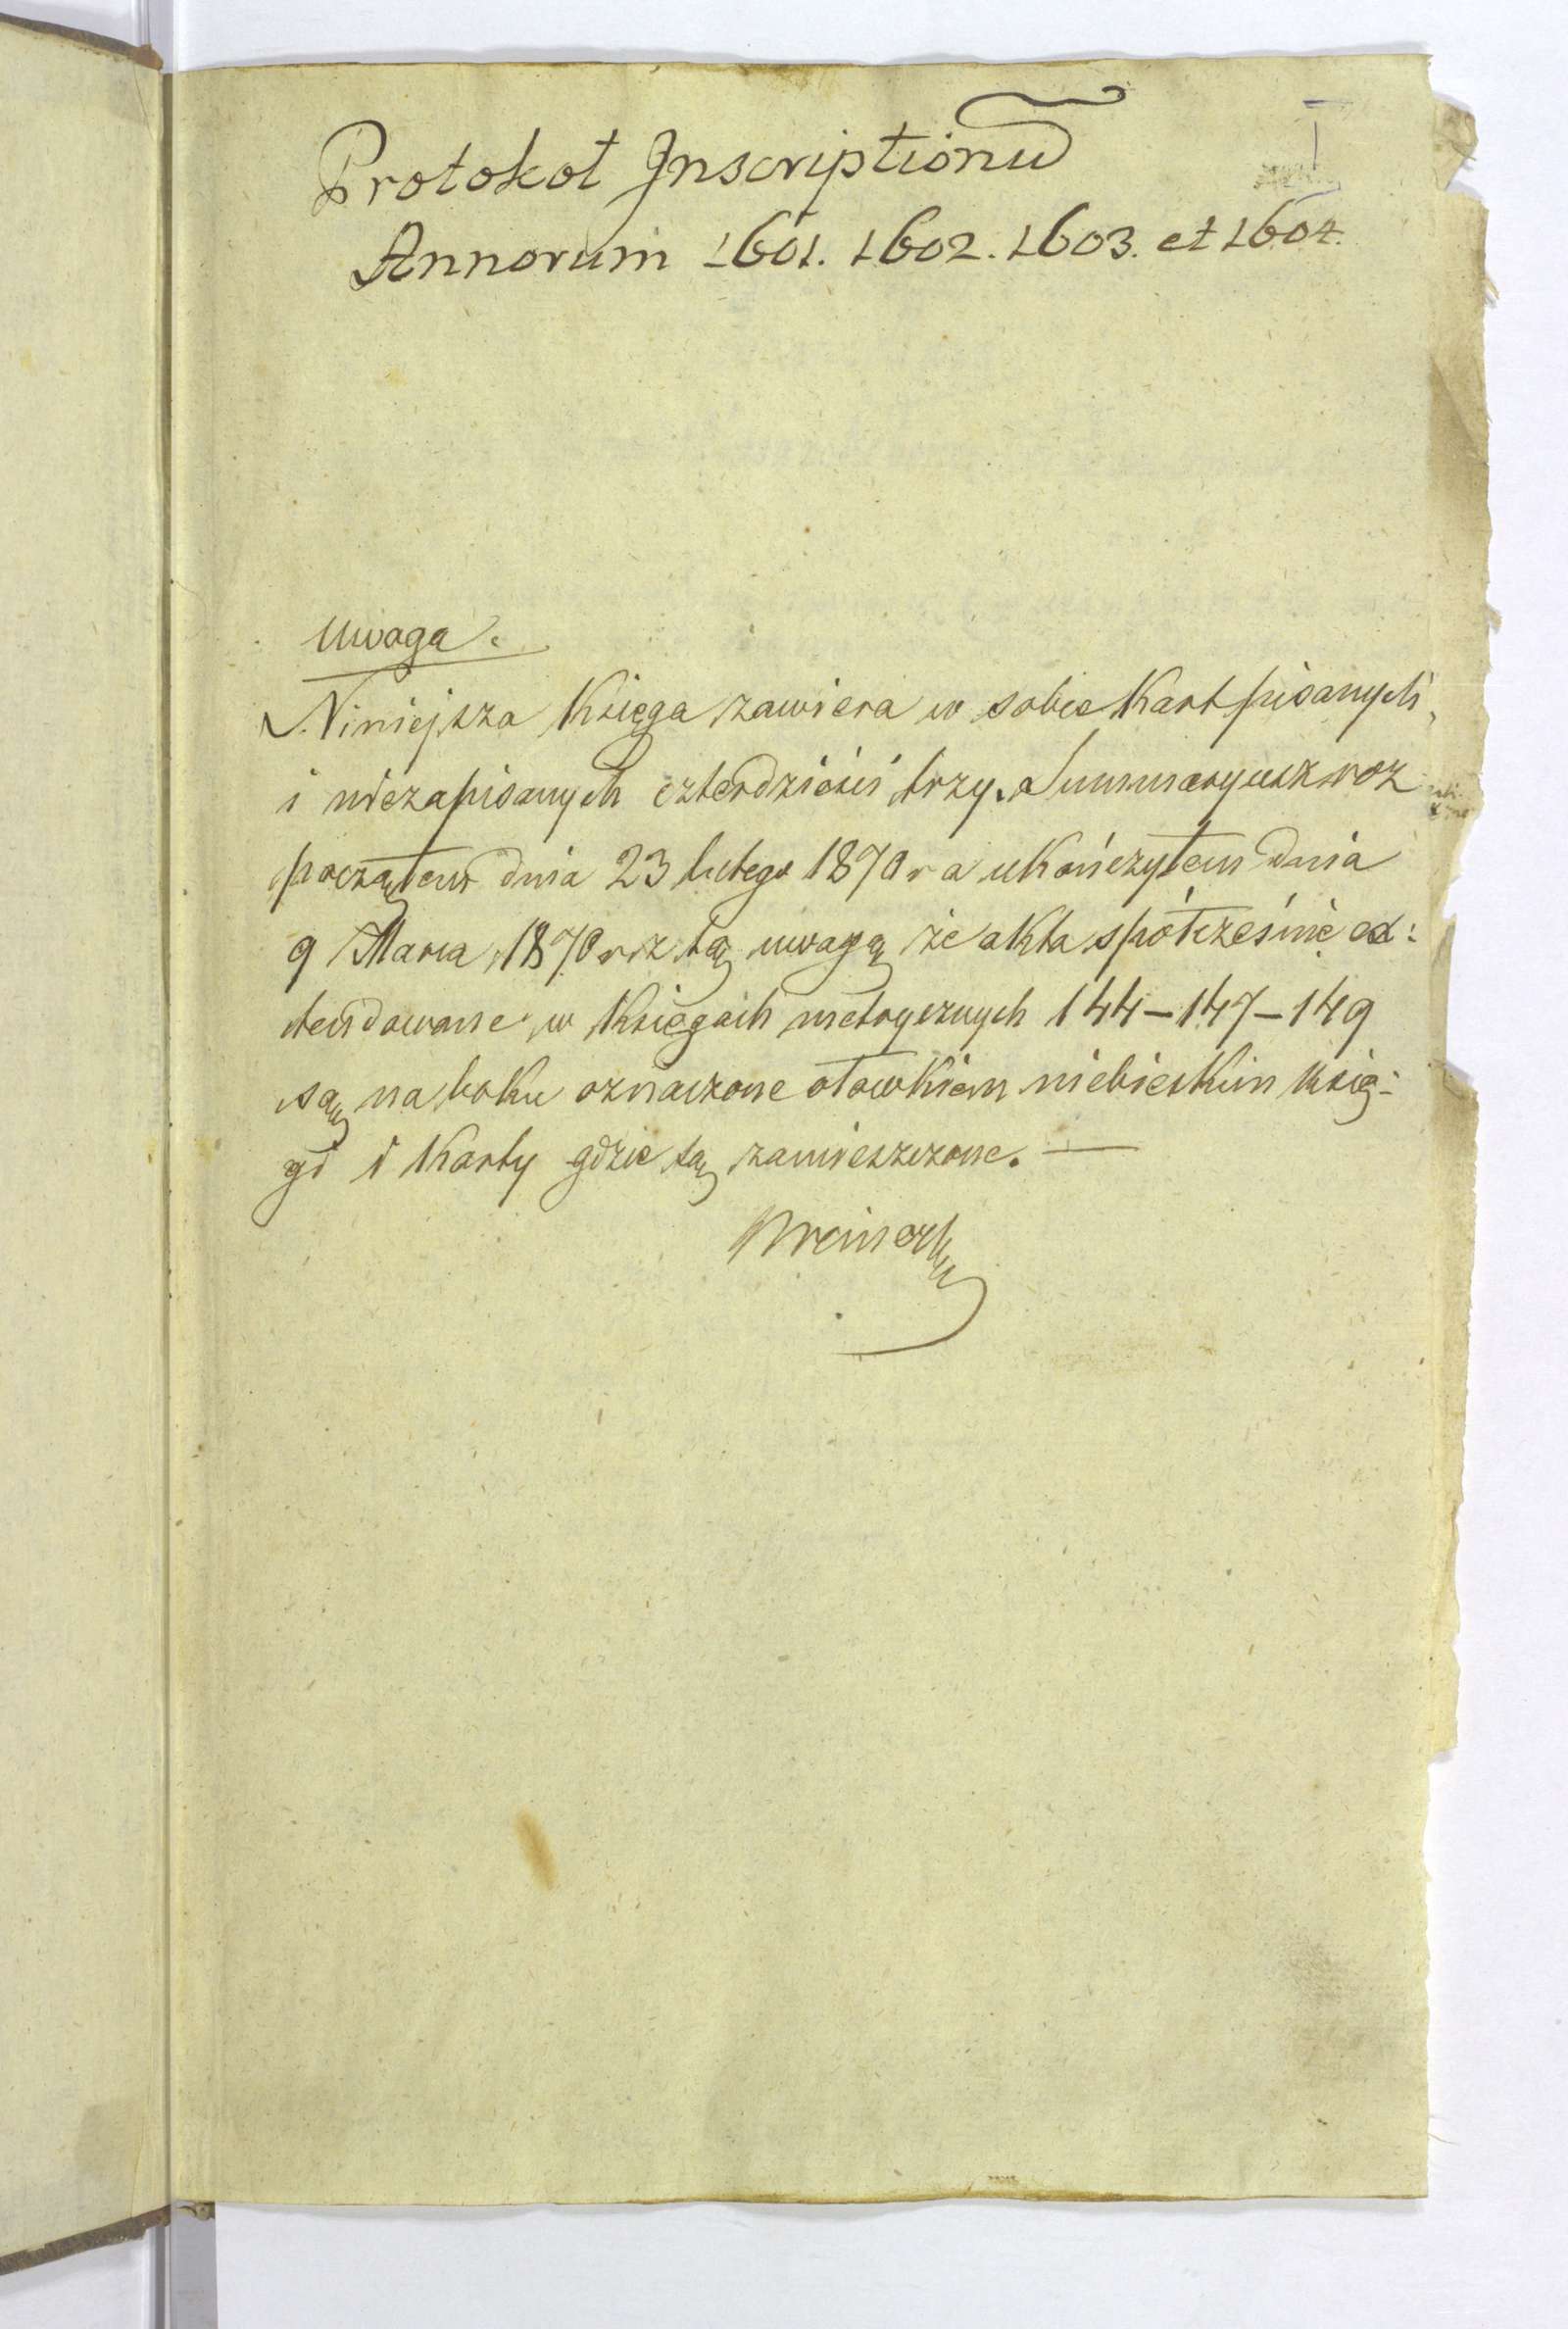 I
Protokoł Inscriptionū
Annorum 1601. 1602. 1603. et 1604.
Uwaga.
Niniejsza Księga zawiera w sobie Kart pisanych,
i niezapisanych czterdzieści trzy. Summaryusz roz
począłem dnia 23 lutego 1870 r a ukończyłem dnia
9 Marca 1870 r z tą uwagą że akta spółcześnie ex:
tendowane w Księgach metrycznych 144–147–149
są na boku oznaczone ołówkiem niebieskim księ:
gi i Karty gdzie są zamieszczone. —